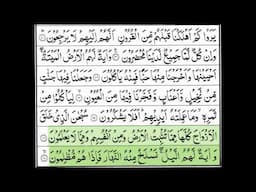 يَرَوْا كَمْ اَهْلَكْنَا قَبْلَهُمْ مِّنَ الْقُرُوْنِ اَنَّهُمْ اِلَيْهِمْ لَا يَرْجِعُوْنَ
وَاِنْ كُلٌّ لَّمَّا جَمِيْعٌ لَّدَيْنَا مُحْضَرُوْنَ وَاٰيَةٌ لَّهُمُ الْاَرْضُ الْمَيْتَةُ
اَحْيَيْنٰهَا وَاَخْرَجْنَا مِنْهَا حَبًّا فَمِنْهُ يَاْكُلُوْنَ وَجَعَلْنَا فِيْهَا جَنّٰتٍ
مِّنْ نَّخِيْلٍ وَّاَعْنَابٍ وَّفَجَّرْنَا فِيْهَا مِنَ الْعُيُوْنِ لِيَاْكُلُوْا مِنْ
ثَمَرِهٖ وَمَا عَمِلَتْهُ اَيْدِيْهِمْ اَفَلَا يَشْكُرُوْنَ سُبْحٰنَ الَّذِيْ خَلَقَ
الْاَزْوَاجَ كُلَّهَا مِمَّا تُنْۢبِتُ الْاَرْضُ وَمِنْ اَنْفُسِهِمْ وَمِمَّا لَا يَعْلَمُوْنَ
وَاٰيَةٌ لَّهُمُ الَّيْلُ نَسْلَخُ مِنْهُ النَّهَارَ فَاِذَا هُمْ مُّظْلِمُوْنَ